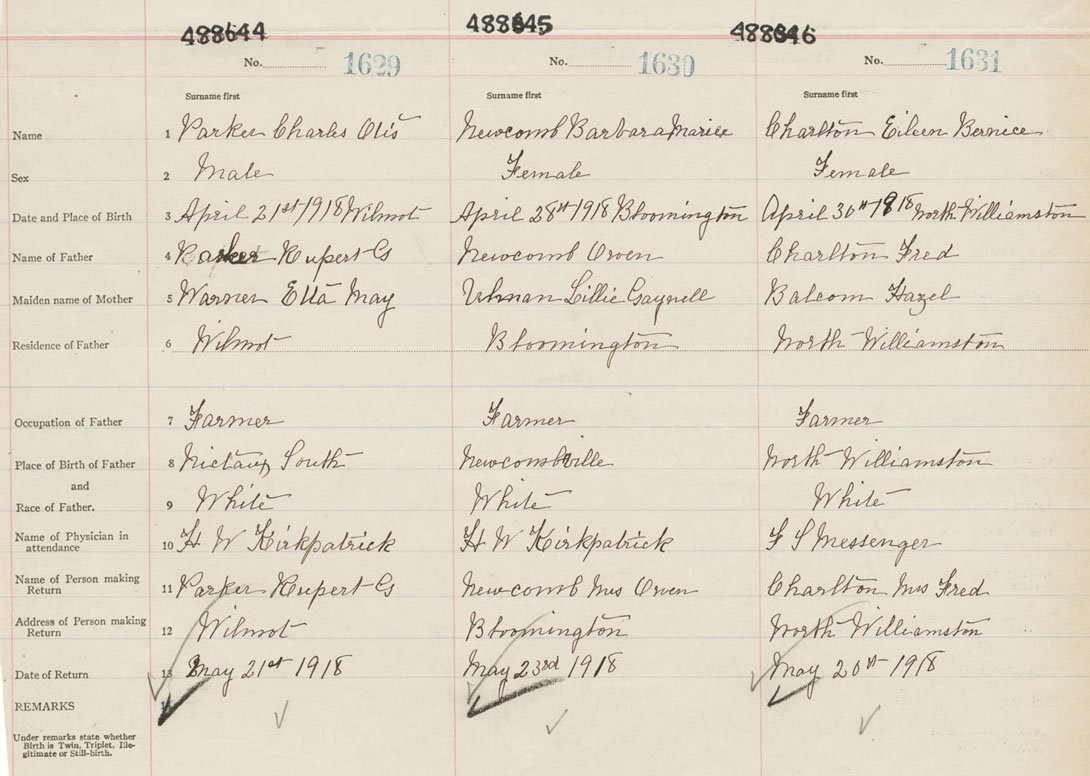 488644 488645 488646
No. 1629 No. 1630 No. 1631
Surname first Surname first Surname first
Name 1 Parker Charles Otis Newcomb Barbara Marie Charlton Eileen Bernice
Sex 2 Male Female Female
Date and Place of Birth 3 April 21st 1918 Wilmot April 28th 1918 Bloomington April 30th 1918 North Williamston
Name of Father 4 Parker Rupert G Newcomb Owen Charlton Fred
Maiden name of Mother 5 Warner Etta May Uhman Lillie Gaynell Balcom Hazel
Residence of Father 6 Wilmot Bloomington North Williamston
Occupation of Father 7 Farmer Farmer Farmer
Place of Birth of Father 8 Nictaux South Newcombville North Williamston
and
Race of Father. 9 White White White
Name of Physician in
attendance 10 H W Kirkpatrick H W Kirkpatrick F S Messenger
Name of Person making
Return 11 Parker Rupert G Newcomb Mrs Owen Charlton Mrs Fred
Address of Person making
Return 12 Wilmot Bloomington North Williamston
Date of Return 13 May 21st 1918 May 23rd 1918 May 20th 1918
REMARKS
Under remarks state whether
Birth is Twin, Triplet, Ille-
gitimate or Still-birth.